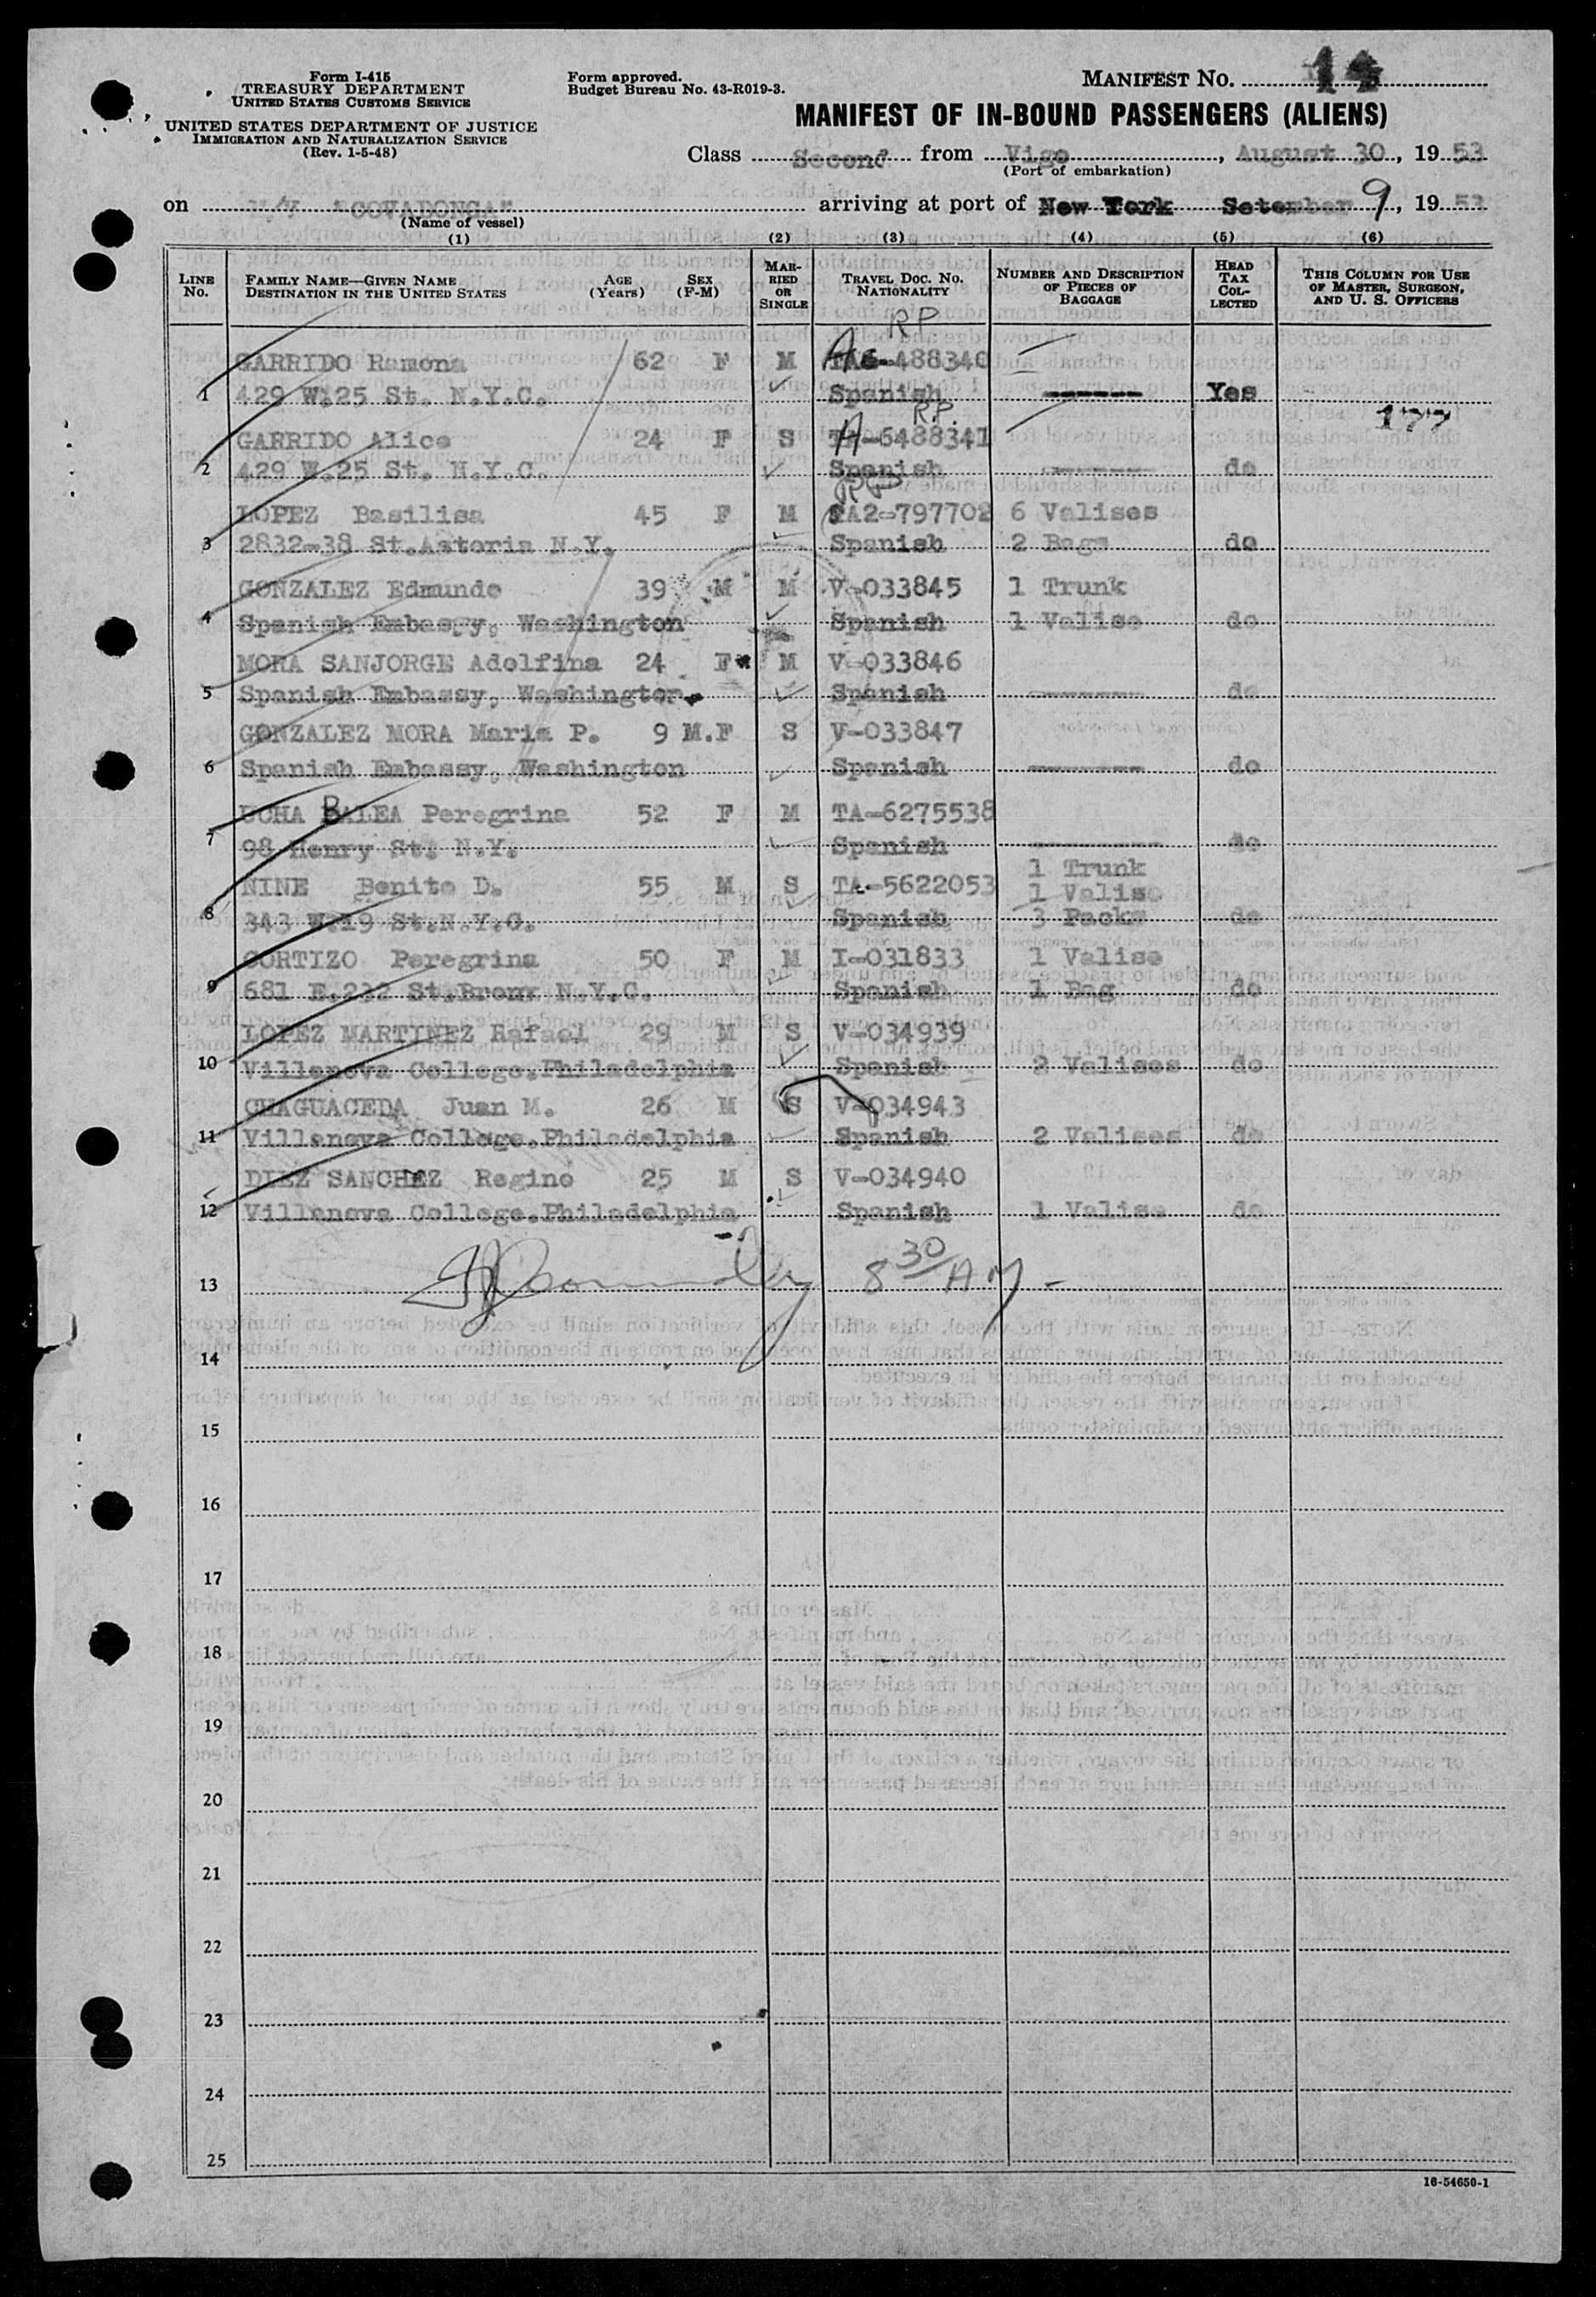 Form I-415
TREASURY DEPARTMENT
UNITED STATES CUSTOMS SERVICE
UNITED STATES DEPARTMENT OF JUSTICE
IMMIGRATION AND NATURALIZATION SERVICE
(Rev. 1-5-48)
Form approved.
Budget Bureau No. 43-R019-3.
MANIFEST NO. 14
MANIFEST OF IN-BOUND PASSENGERS (ALIENS)
Class Second from Vigo, August 30, 1953
(Port of embarkation)
on M/V "COVADONGA" arriving at port of New York Setember 9, 1953
(Name of vessel)
(1) (2) (3) (4) (5) (6)
LINE NO. FAMILY NAME—GIVEN NAME DESTINATION IN THE UNITED STATES AGE (Years) SEX (F-M) MARRIED OR SINGLE TRAVEL DOC. NO. NATIONALITY NUMBER AND DESCRIPTION OF PIECES OF BAGGAGE HEAD TAX COLLECTED THIS COLUMN FOR USE OF MASTER, SURGEON, AND U. S. OFFICERS
RP
GARRIDO Ramona 62 F M A6-488340
1 429 W.25 St. N.Y.C. Spanish ------ Yes
RP. 177
GARRIDO Alice 24 F S A-6488341
2 429 W.25 St. N.Y.C. Spanish ------ do
RP
LOPEZ Basilisa 45 F M A2-797702 6 Valises
3 2832-38 St.Astoria N.Y. Spanish 2 Bags do
GONZALEZ Edmundo 39 M M V-033845 1 Trunk
4 Spanish Embassy, Washington Spanish 1 Valise do
MORA SANJORGE Adolfina 24 F M V-033846
5 Spanish Embassy, Washington Spanish ------ do
GONZALEZ MORA Maria P. 9 M.F S V-033847
6 Spanish Embassy, Washington Spanish ------ do
UCHA BALEA Peregrina 52 F M TA-6275538
7 98 Henry St. N.Y. Spanish ------ do
1 Trunk
NINE Benito D. 55 M S TA-5622053 1 Valise
8 343 W.19 St.N.Y.C. Spanish 3 Packs do
CORTIZO Peregrina 50 F M I-031833 1 Valise
9 681 E.232 St.Bronx N.Y.C. Spanish 1 Bag do
LOPEZ MARTINEZ Rafael 29 M S V-034939
10 Villanova College.Philadelphia Spanish 2 Valises do
CHAGUACEDA Juan M. 26 M S V-034943
11 Villanova College.Philadelphia Spanish 2 Valises do
DIEZ SANCHEZ Regino 25 M S V-034940
12 Villanova College.Philadelphia Spanish 1 Valise do
13 8 30 AM -
14
15
16
17
18
19
20
21
22
23
24
25
16-54650-1